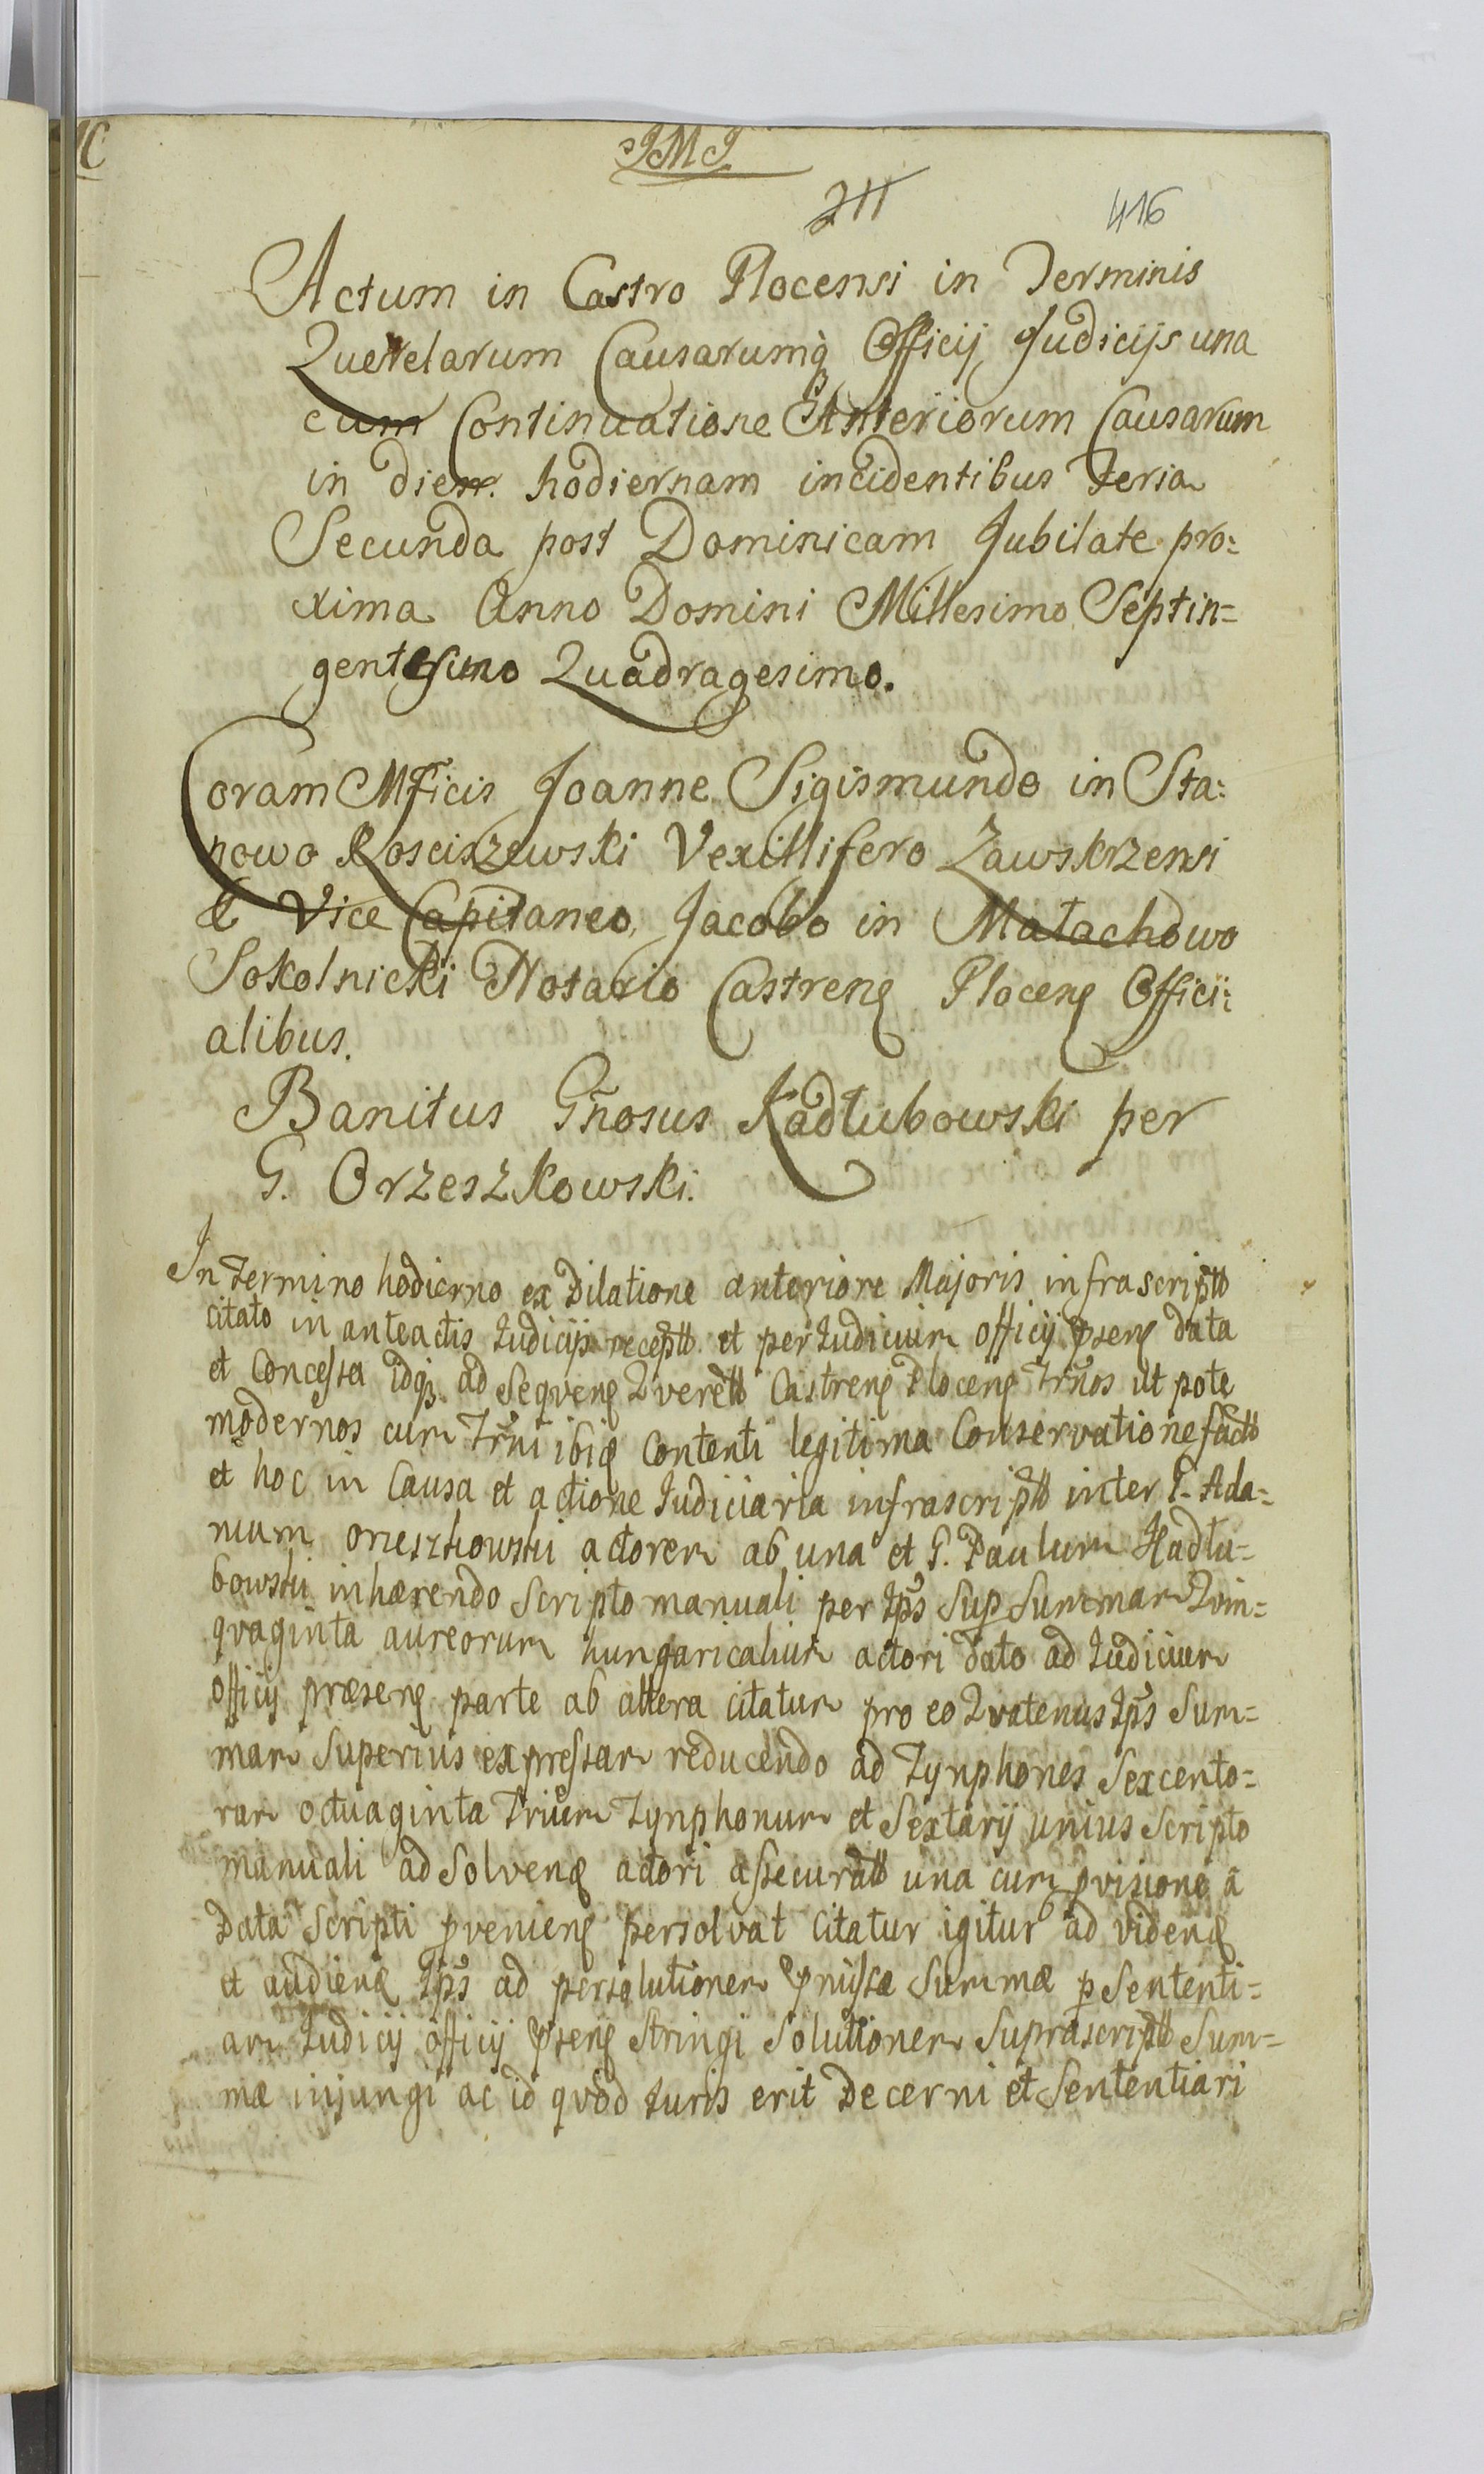 JMJ
211
416
Actum in Castro Plocensi in Terminis
Querelarum Causarumq̃ Officij Judicijs una
cum Continuatione Anteriorum Causarum
in diem hodiernam incidentibus Feria
Secunda post Dominicam Jubilate pro:
xima Anno Domini Millesimo Septin=
gentesimo Quadragesimo.
Coram Mficis Joanne Sigismundo in Sta:
nowo Rosciszewski Vexillifero Zawskrzensi
& Vice Capitaneo, Jacobo in Małachowo
Sokolnicki Notario Castrenȩ Plocenȩ Offici:
alibus.
Banitus Gñosus Kadłubowski per
G. Orzeszkowski.
In termino hodierno ex Dilatione anteriore Majoris infrascriptt
citato in anteactis Judicijs receptt et per Judicium officij p̃senȩ data
et Concessa idqȝ ad Seqvenȩ Qverett Castrenȩ Plocenȩ Trños ut pote
modernos cum Trñi ibiȩ Contenti legitima Conservatione factt
et hoc in Causa et actione Judiciaria infrascriptt inter G. Ada=
mum orzeszkowski actorem ab una et G. Paulum Kadłu=
bowski inhærendo Scripto manuali per Ip̃s Sup Summam Qvin=
qvaginta aureorum hungaricalium actori dato ad Judicium
officij præsenȩ parte ab altera citatum pro eo Qvatenus Ip̃s Sum=
mam Superius expressam reducendo ad Tynphones Sexcento=
rum octuaginta Trium Tynphonum et Sextarij unius Scripto
manuali ad Solvenȩ actori assecuratt una cum p̱visione à
Data Scripti p̱venienȩ persolvat Citatur igitur ad videnȩ
et audienȩ Ip̃s ad persolutionem p̃missæ Summæ p̱ Sententi=
am Judicij officij p̃senȩ Stringi Solutionem Suprascriptt Sum=
mæ injungi ac id qvod Juris erit Decerni et Sententiari